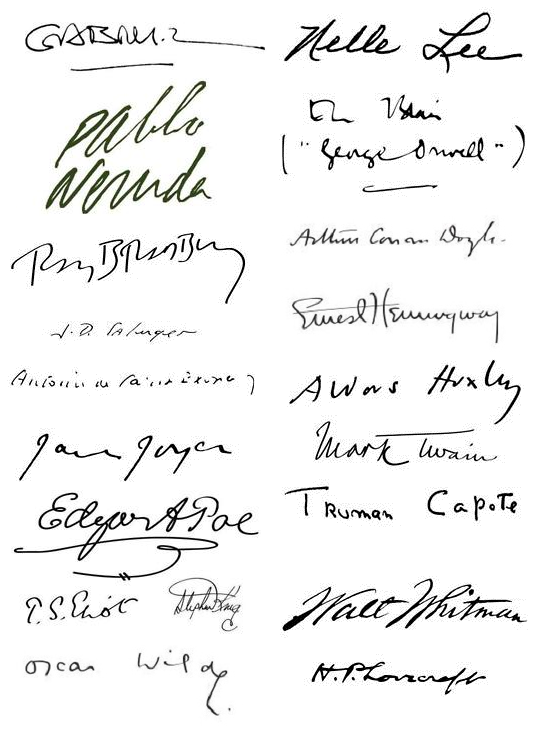 GABRIEL
Pablo
Neruda
Ray Bradbury
J. D. Salinger
Antoine de Saint Exupéry
James Joyce
Edgar A Poe
T. S. Eliot
Stephen King
Oscar Wilde
Nelle Lee
Eric Blair
("George Orwell")
Arthur Conan Doyle.
Ernest Hemingway
Aldous Huxley
Mark Twain
Truman Capote
Walt Whitman
H. P. Lovecraft